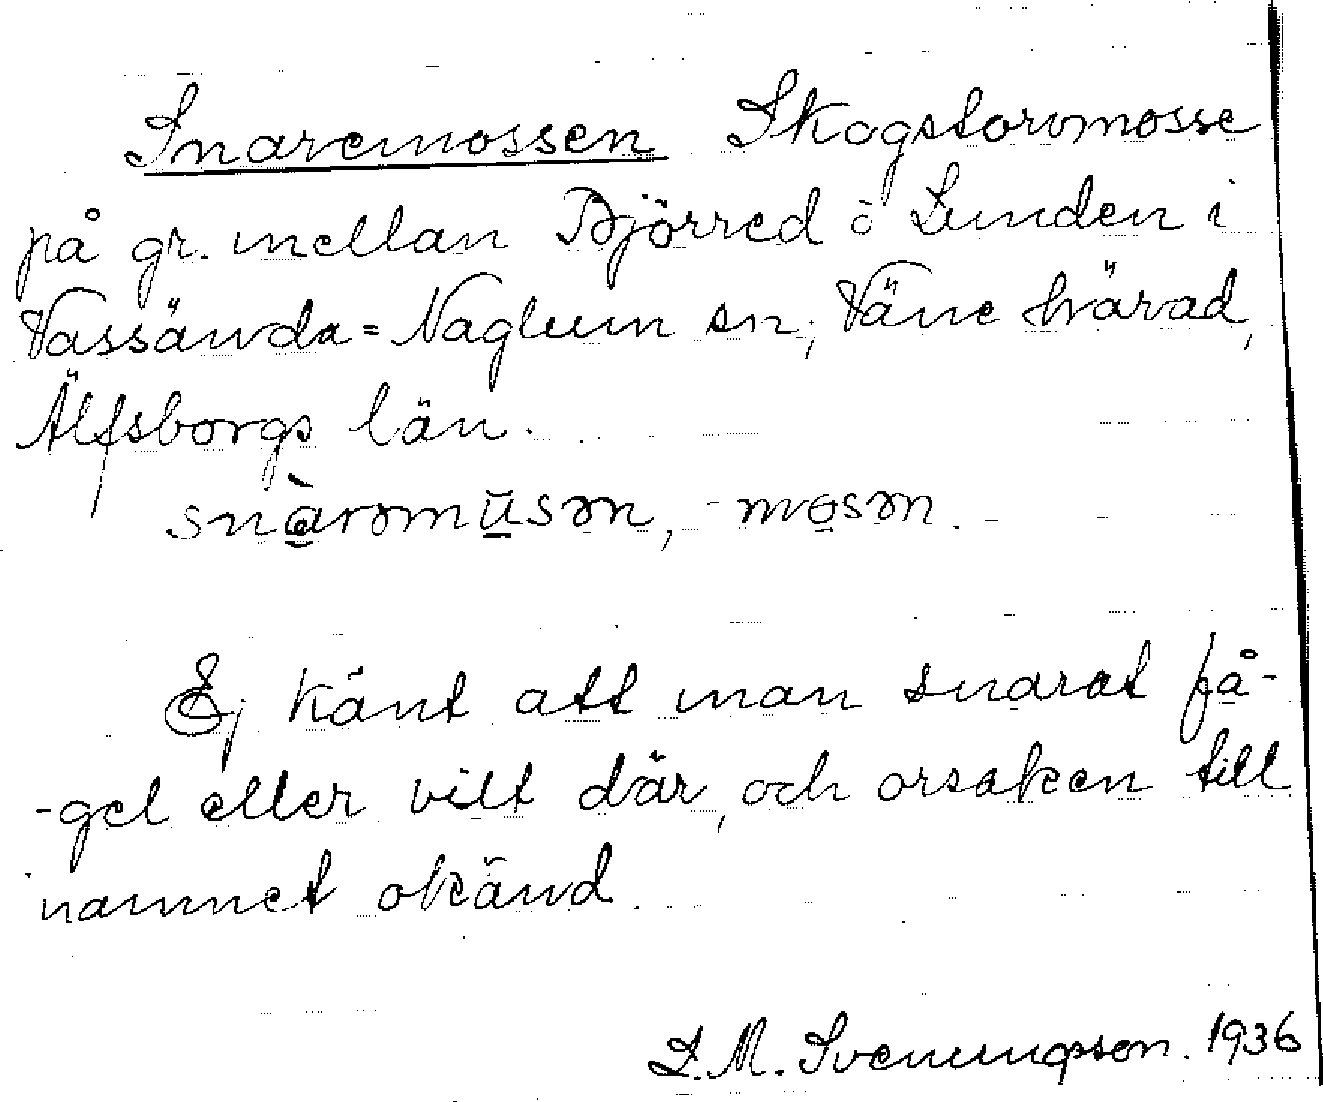 Snaremossen Skogstorvmosse
på gr. mellan Björred ö Lunden i
Vassända=Naglum sn, Väne härad,
Älfsborgs län.
snàrəmūsən, -mosən.
Ej känt att man snarat få-
-gel eller vilt där, och orsaken till
namnet okänd.
L.M. Svenungsson. 1936